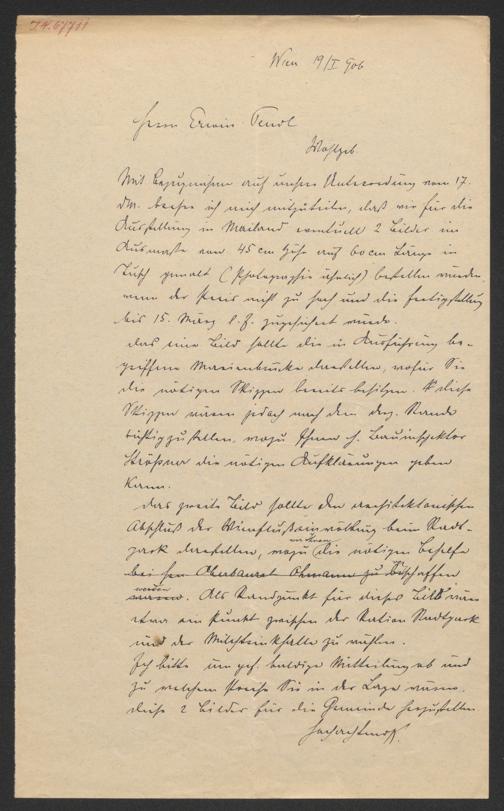 Wien 19/I 906
Herrn Erwin Pendl
Wohlgeb.
Mit Bezugnahme auf unsere Unterredung vom 17.
dM. beehre ich mich mitzuteilen, daß wir für die
Ausstellung in Mailand eventuell 2 Bilder im
Ausmaße von 45 cm Höhe auf 60 cm Länge in
Tusch gemalt (Photographie ähnlich) bestellen würden,
wenn der Preis nicht zu hoch und die Fertigstellung
bis 15. März l. J. zugesichert würde.
Das eine Bild sollte die in Ausführung be-
griffene Marienbrücke darstellen, wofür Sie
die nötigen Skizzen bereits besitzen. Diese
Skizzen wären jedoch nach dem Stande
richtigzustellen, wozu Ihnen H. Bauinspektor
die nötigen Aufklärungen geben
kann.
Das zweite Bild sollte den architektonischen
Abschluß der Wienflußeinwölbung beim Stadt-
park darstellen, wozu die nötigen Behelfe
bei Herrn Oberbaurat Ohmann zu beschaffen
wären. Als Standpunkt für dieses Bild wäre
etwa ein Punkt zwischen der Station Stadtpark
und der Milchtrinkhalle zu wählen.
Ich bitte um gefl. baldige Mitteilung ob und
zu welchem Preise Sie in der Lage wären,
diese 2 Bilder für die Gemeinde herzustellen.
Hochachtend